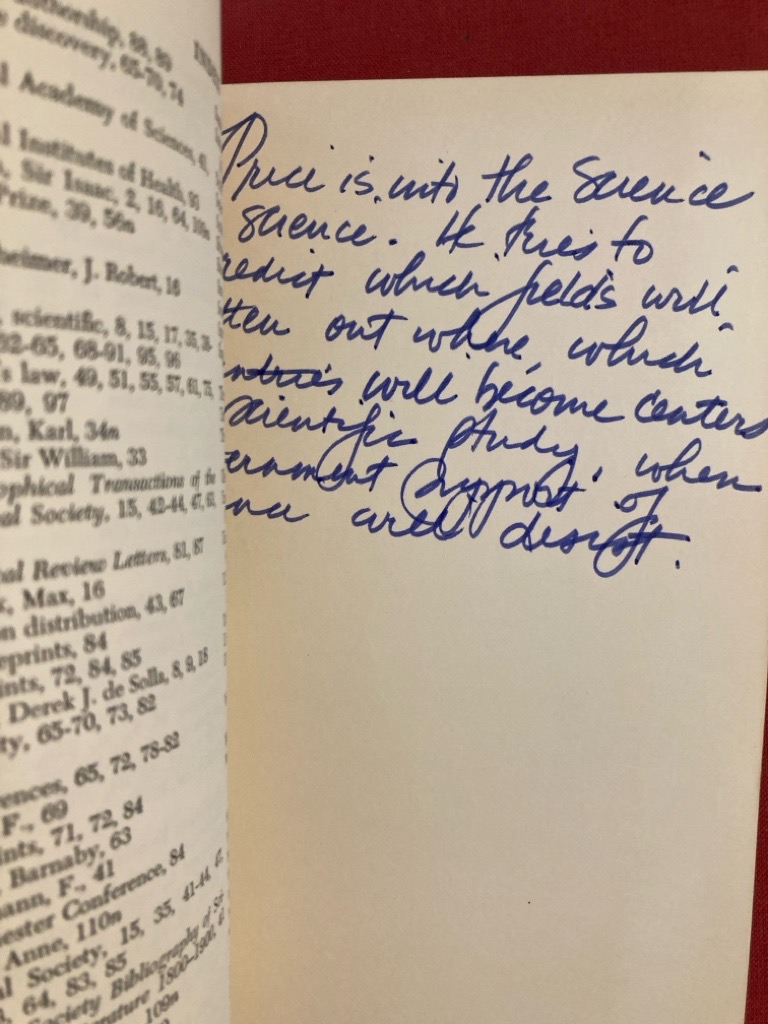 uthorship, 88, 89
s discovery, 65-70, 74
l Academy of Sciences,
l Institutes of Health, 93
, Sir Isaac, 2, 16, 64,
Prize, 39, 56n
heimer, J. Robert, 16
, scientific, 8, 15, 17,
32-65, 68-91, 95, 96
's law, 49, 51, 55, 57, 61, 75,
89, 97
n, Karl, 34n
Sir William, 33
ophical Transactions of the
al Society, 15, 42-44, 47,
cal Review Letters, 81, 87
k, Max, 16
on distribution, 43, 67
eprints, 84
ints, 72, 84, 85
Derek J. de Solla, 8, 9, 18
ty, 65-70, 73, 82
ences, 65, 72, 78-82
F., 69
ints, 71, 72, 84
, Barnaby, 63
ann, F., 41
ester Conference, 84
Anne, 110n
l Society, 15, 35, 41-44,
, 64, 83, 85
Society Bibliography of
erature 1800-1900,
109n
Price is into the Science
science. He tries to
redict which fields will
tten out where, which
ntries will become centers
scientific study, when
ernment support of
nce will desist.